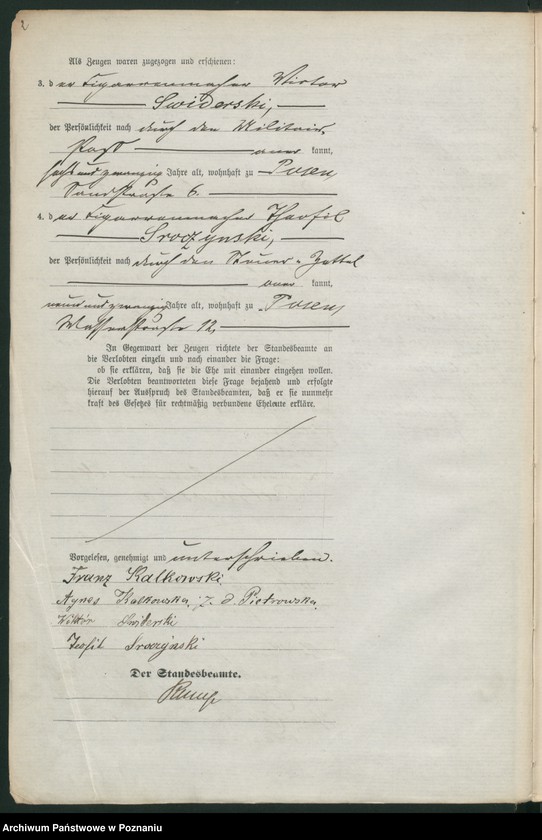 2
Als Zeugen waren zugezogen und erschienen:
3. der Cigarrenmacher Victor
Swiderski,
der Persönlichkeit nach durch den Militair
Paß aner kannt,
sechsundzwanzig Jahre alt, wohnhaft zu Posen
Sandstraße 6.
4. der Cigarrenmacher Theofil
Sroczynski,
der Persönlichkeit nach durch den Steuer-Zettel
aner kannt,
neunundzwanzig Jahre alt, wohnhaft zu Posen,
Wasserstraße 12,
In Gegenwart der Zeugen richtete der Standesbeamte an
die Verlobten einzeln und nach einander die Frage:
ob sie erklären, daß sie die Ehe mit einander eingehen wollen.
Die Verlobten beantworteten diese Frage bejahend und erfolgte
hierauf der Ausspruch des Standesbeamten, daß er sie nunmehr
kraft des Gesetzes für rechtmäßig verbundene Eheleute erkläre.
Vorgelesen, genehmigt und unterschrieben.
Franz Kalkowski.
Agnes Kalkowska, z. d. Pietrowska.
Wiktór Swiderski
Teofil Sroczyński
Der Standesbeamte.
Archiwum Państwowe w Poznaniu